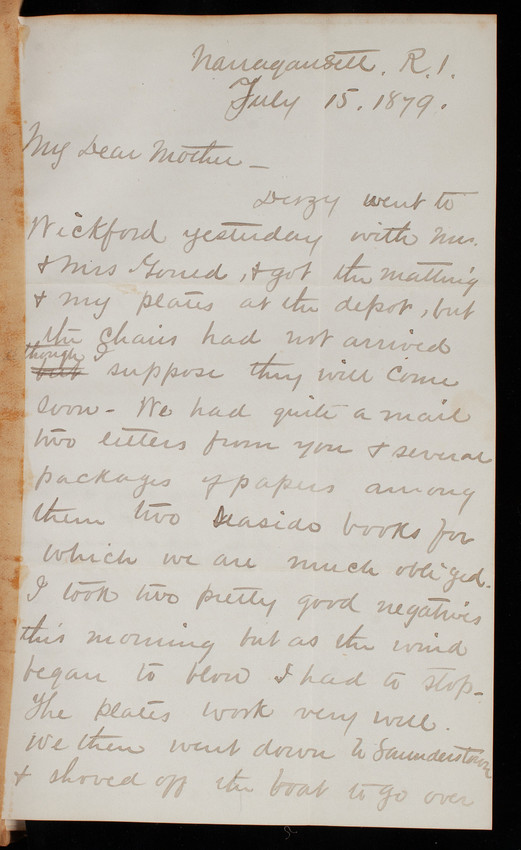 Narragansett. R.I.
July 15. 1879.
My Dear Mother —
Derzy went to
Wickford yesterday with Mr.
& Miss Gould, & got the matting
& my plates at the depot, but
the chairs had not arrived
though I
but suppose they will come
soon - We had quite a mail
two letters from you & several
packages of papers among
them two Seaside books for
which we are much obliged.
I took two pretty good negatives
this morning but as the wind
began to blow I had to stop-
The plates work very well.
We then went down to Saunderstown
& shoved off the boat to go over